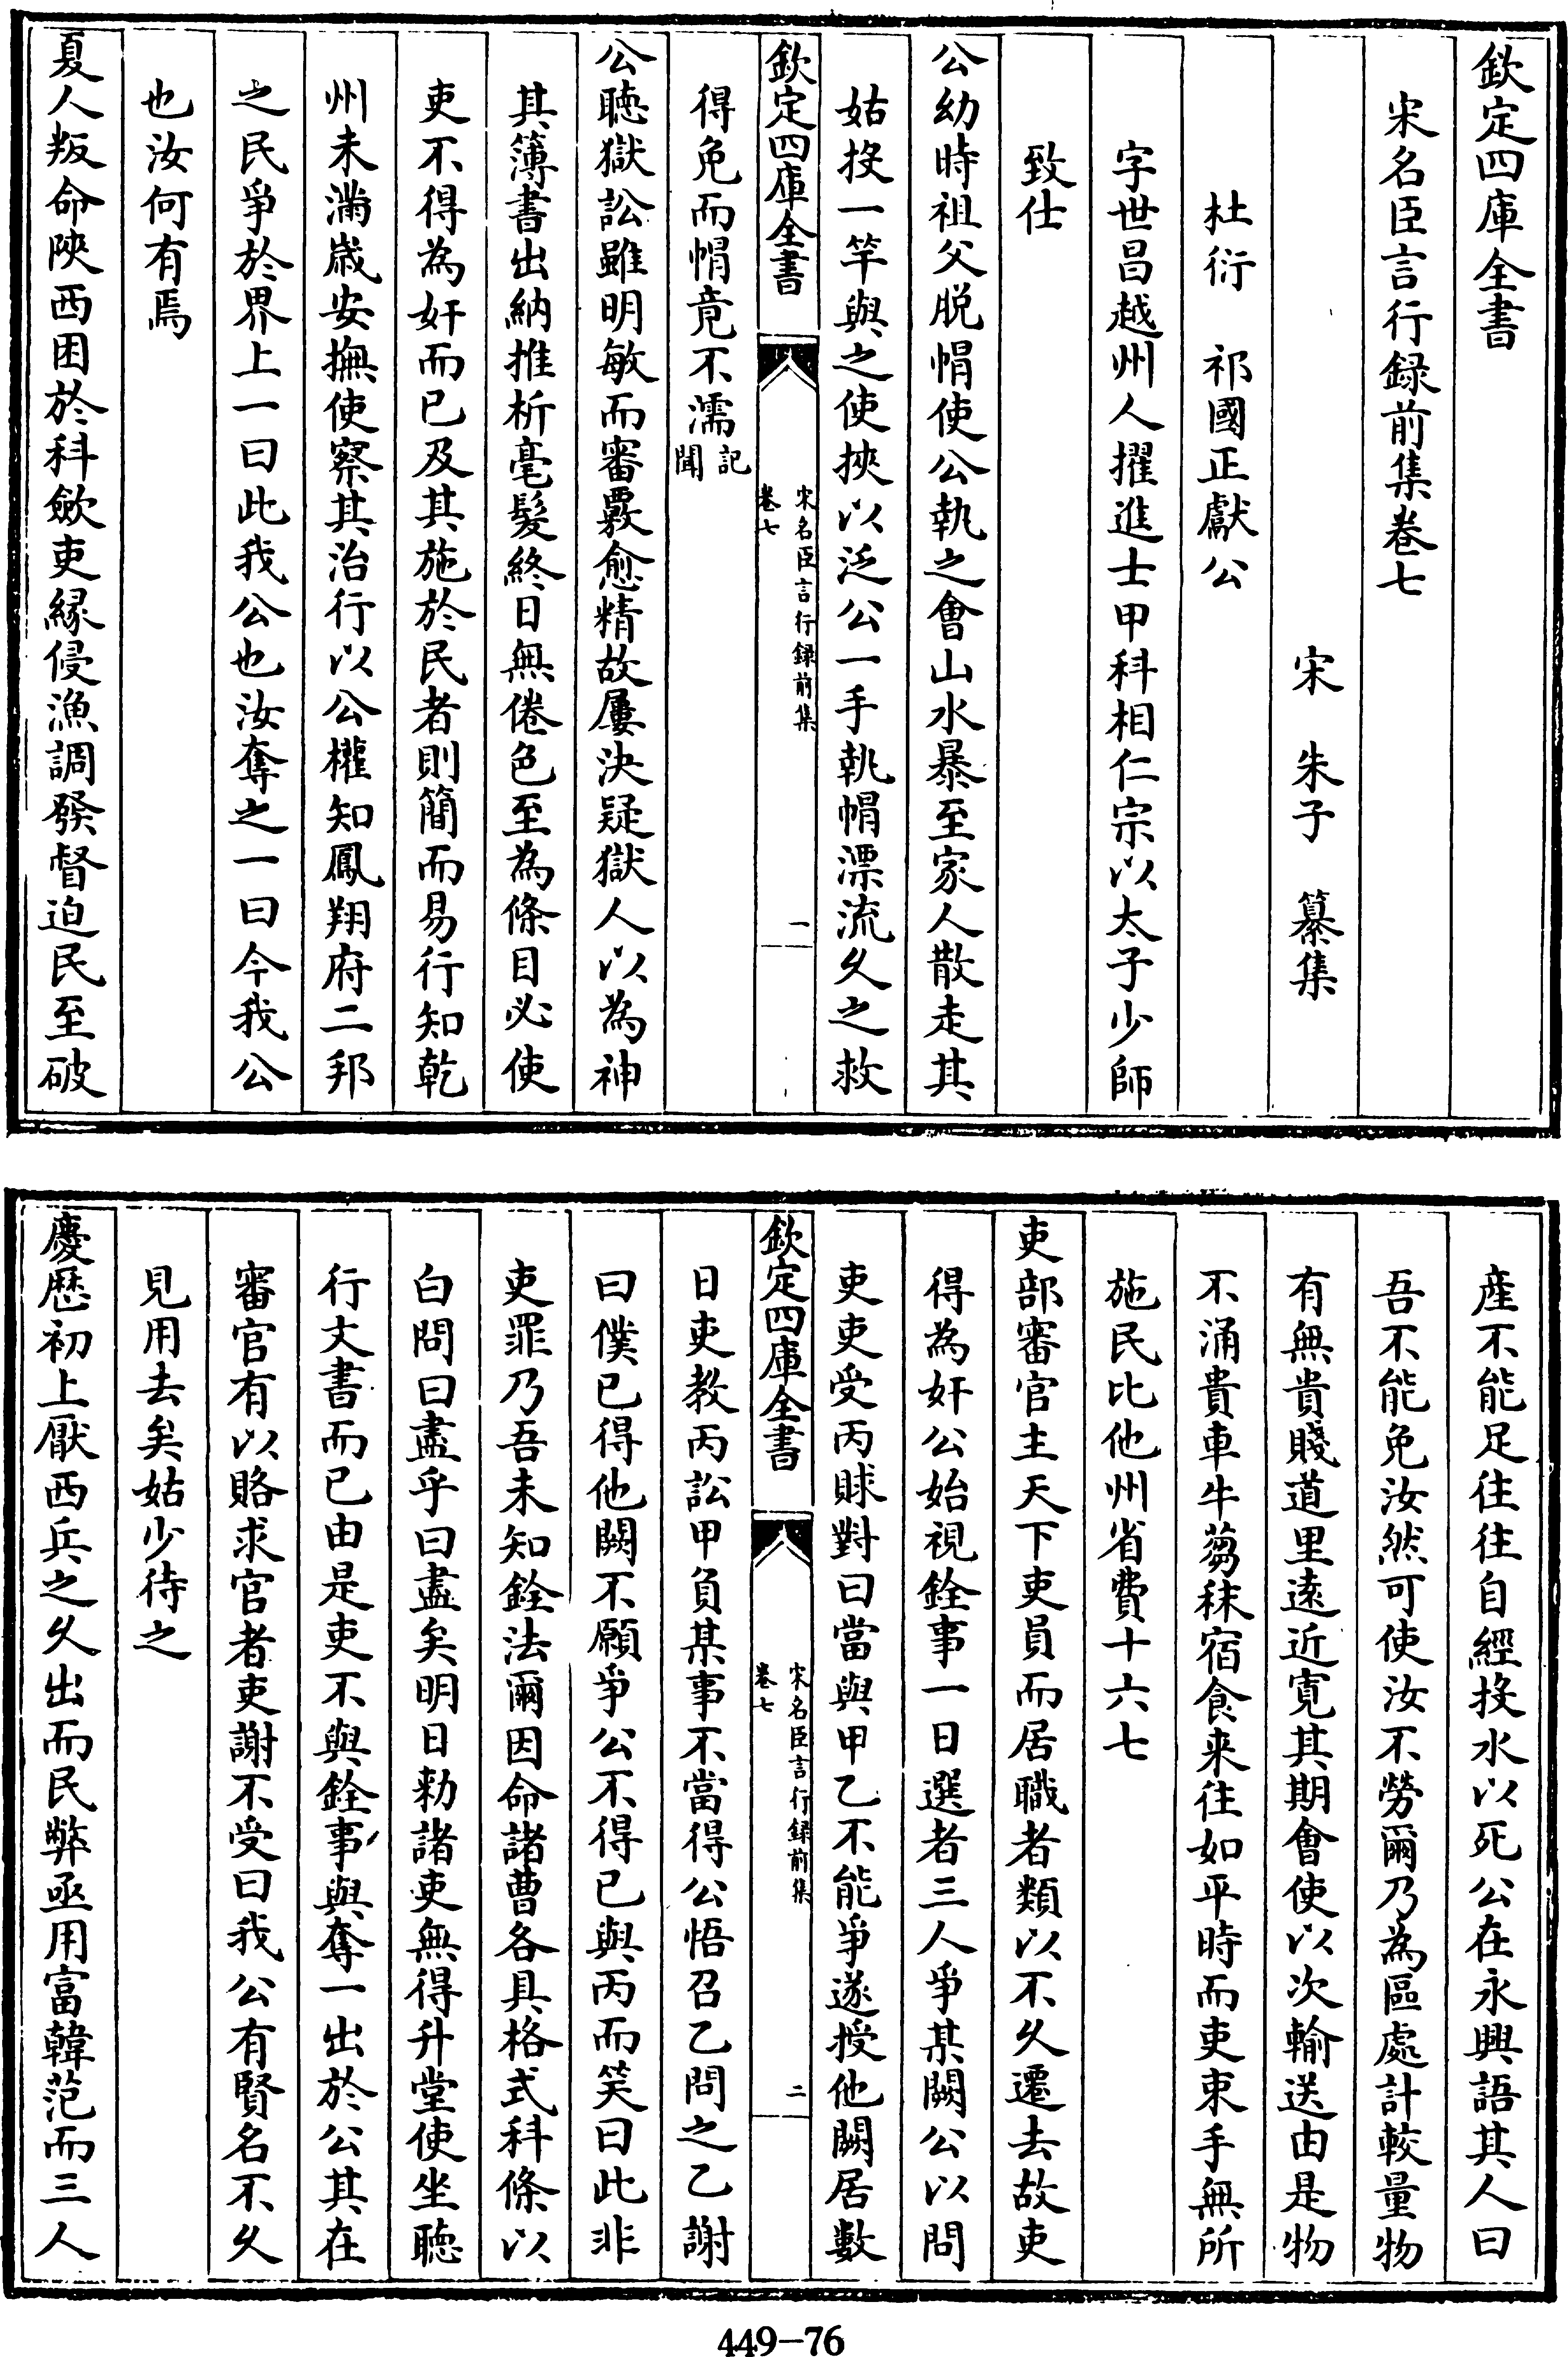 欽定四庫全書
宋名臣言行録前集卷七
宋　朱子　纂集
杜衍　祁國正獻公
字世昌越州人擢進士甲科相仁宗以太子少師
致仕
公幼時祖父脱帽使公執之會山水暴至家人散走其
姑投一竿與之使挾以泛公一手執帽漂流久之救
欽定四庫全書
宋名臣言行録前集
卷七
一
得免而帽竟不濡記聞
公聴獄訟雖明敏而審覈愈精故屢決疑獄人以為神
其簿書出納推析毫髮終日無倦色至為條目必使
吏不得為奸而已及其施於民者則簡而易行知乾
州未滿嵗安撫使察其治行以公權知鳳翔府二邦
之民爭於界上一曰此我公也汝奪之一曰今我公
也汝何有焉
夏人叛命陜西困於科歛吏縁侵漁調發督迫民至破
産不能足往往自經投水以死公在永興語其人曰
吾不能免汝然可使汝不勞爾乃為區處計較量物
有無貴賤道里逺近寛其期會使以次輸送由是物
不涌貴車牛芻秣宿食来往如平時而吏束手無所
施民比他州省費十六七
吏部審官主天下吏員而居職者類以不久遷去故吏
得為奸公始視銓事一日選者三人爭某闕公以問
吏吏受丙賕對曰當與甲乙不能爭遂授他闕居數
欽定四庫全書
宋名臣言行録前集
卷七
二
日吏教丙訟甲負某事不當得公悟召乙問之乙謝
曰僕已得他闕不願爭公不得已與丙而笑曰此非
吏罪乃吾未知銓法爾因命諸曹各具格式科條以
白問曰盡乎曰盡矣明日勅諸吏無得升堂使坐聴
行文書而已由是吏不與銓事與奪一出於公其在
審官有以賂求官者吏謝不受曰我公有賢名不久
見用去矣姑少待之
慶厯初上厭西兵之久出而民弊亟用富韓范而三人
449-76